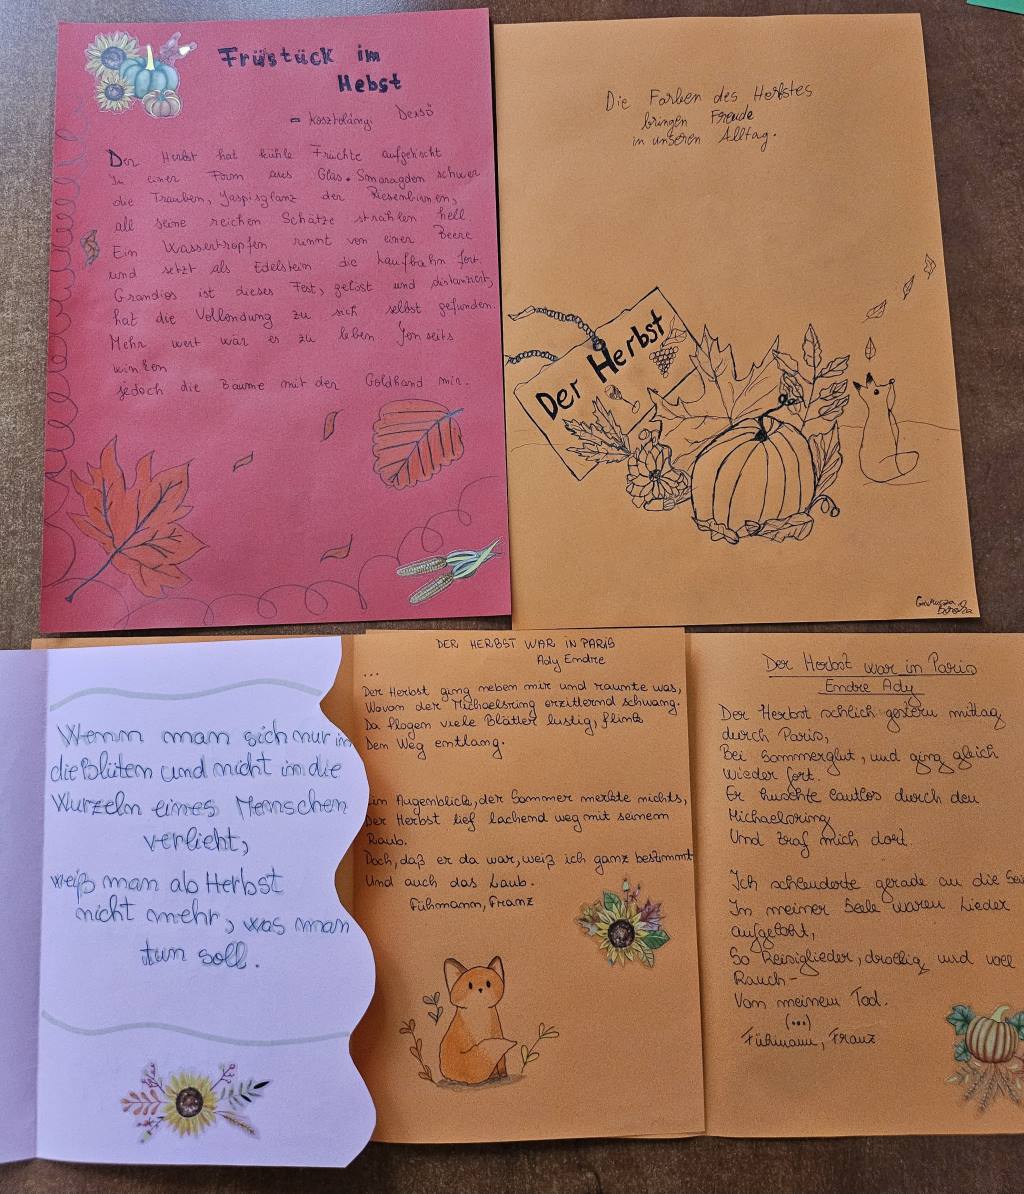 Früstück im
Hebst
- Kosztolányi Dezső
Der Herbst hat kühle Früchte aufgetischt
In einer Form aus Glas. Smaragden schwer
die Trauben, Jaspisglanz der Riesenbirnen,
all seine reichen Schätze strahlen hell
Ein Wassertropfen rinnt von einer Beere
und setzt als Edelstein die Laufbahn fort.
Grandios ist dieses Fest, gelöst und distanziert,
hat die Vollendung zu sich selbst gefunden.
Mehr wert wär es zu leben Jenseits
winken
jedoch die Bäume mit den Goldhand mir.
Die Farben des Herbstes
bringen Freude
in unseren Alltag.
Der Herbst
Wenn man sich nur in
die Blüten und nicht in die
Wurzeln eines Menschen
verliebt,
weiß man ab Herbst
nicht mehr, was man
tun soll.
DER HERBST WAR IN PARIS
Ady Endre
...
Der Herbst ging neben mir und raunte was,
Wovon der Michaelsring erzitternd schwang.
Da flogen viele Blätter lustig, flink
Dem Weg entlang.
Ein Augenblick, der Sommer merkte nichts,
Der Herbst lief lachend weg mit seinem
Raub.
Doch, daß er da war, weiß ich ganz bestimmt
Und auch das Laub.
Fühmann, Franz
Der Herbst war in Paris
Emdre Ady
Der Herbst schlich gestern mittag
durch Paris,
Bei Sommerglut, und ging gleich
wieder fort.
Er huschte lautlos durch den
Michaelsring
Und traf mich dort.
Ich schlenderte gerade an die Sei
In meiner Seele waren Lieder
aufgeloht,
So Reisiglieder, drollig und voll
Rauch-
Von meinem Tod.
(...)
Fühmann, Franz